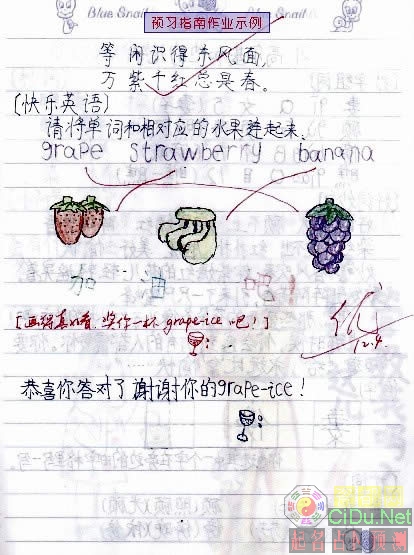 Blue Snail 预习指南作业示例 Blue Snail
等闲识得东风面,
万紫千红总是春。
(快乐英语)
请将单词和相对应的水果连起来.
grape strawberry banana
加 油 吧!
[画得真好看,奖你一杯 grape-ice 吧!]
优
12.4.
恭喜你答对了谢谢你的grape-ice!
CiDu.Net